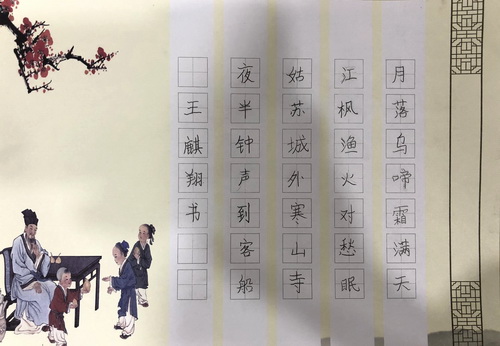 月落乌啼霜满天
江枫渔火对愁眠
姑苏城外寒山寺
夜半钟声到客船
王麒翔书